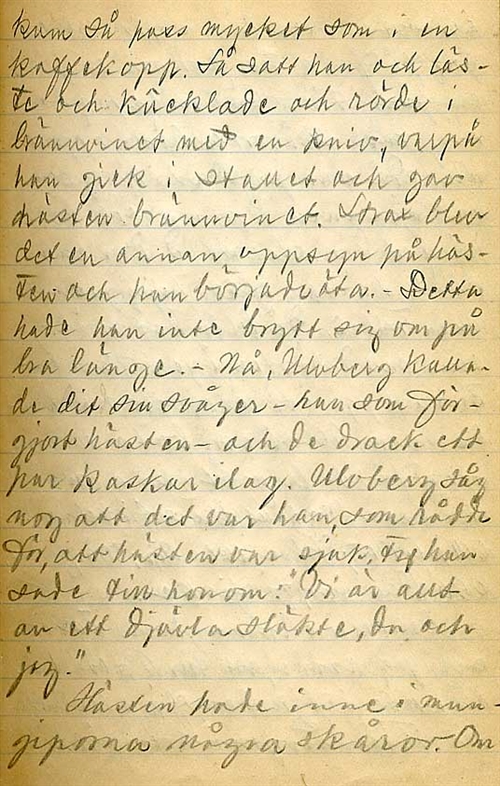 kum så pass mycket som i en
kaffekopp. Så satt han och läs-
te och kucklade och rörde i
brännvinet med en kniv, varpå
han gick i stallet och gav
hästen brännvinet. Strax blev
det en annan uppsyn på häs-
ten och han började äta. - Detta
hade han inte brytt sig om på
bra länge. - Nå, Uloberg kalla-
de dit sin svåger - han som för-
gjort hästen - och de drack ett
par kaskar ilag. Uloberg såg
nog att det var han, som rådde
för, att hästen var sjuk, ty han
sade till honom: "Vi är allt
av ett djävla släkte, du och
jag."
Hästen hade inne i mun-
giporna några skåror. Om